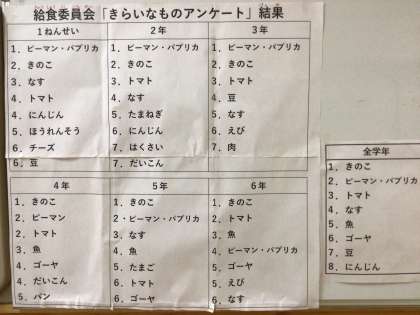 給食委員会「きらいなものアンケート」結果
1ねんせい
1．ピーマン・パプリカ
2．きのこ
3．なす
4．トマト
4．にんじん
5．ほうれんそう
6．チーズ
6．豆
2年
1．ピーマン・パプリカ
2．きのこ
3．トマト
4．なす
5．たまねぎ
6．にんじん
7．はくさい
7．だいこん
3年
1．ピーマン・パプリカ
2．きのこ
3．トマト
4．豆
5．なす
6．えび
7．肉
4年
1．きのこ
2．ピーマン
2．トマト
3．魚
4．ゴーヤ
4．だいこん
5．パン
5年
1．きのこ
2・ピーマン・パプリカ
3．なす
4．魚
5．たまご
6．トマト
6．ゴーヤ
6年
1．きのこ
2．トマト
3．魚
4．ピーマン・パプリカ
4．ゴーヤ
5．えび
6．なす
全学年
1．きのこ
2．ピーマン・パプリカ
3．トマト
4．なす
5．魚
6．ゴーヤ
7．豆
8．にんじん